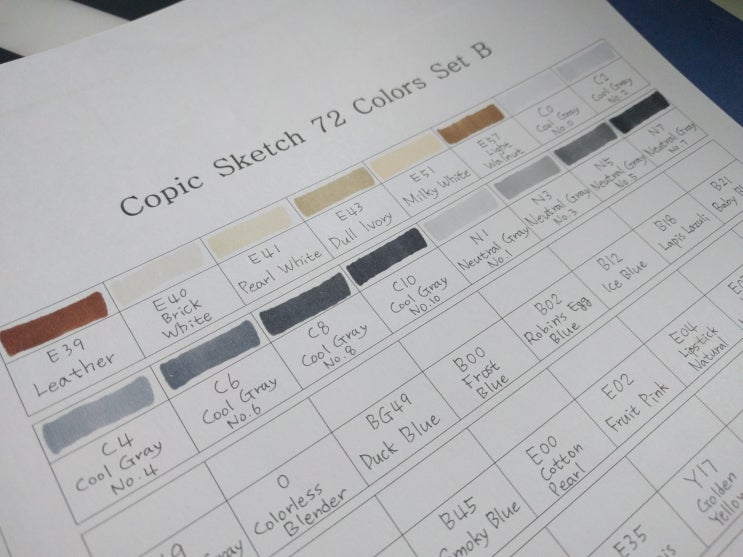 Copic Sketch 72 Colors Set B
E39
Leather
E40
Brick
White
E41
Pearl White
E43
Dull Ivory
E51
Milky White
E57
Light
Walnut
C0
Cool Gray
No.0
C2
Cool Gray
No.2
C4
Cool Gray
No.4
C6
Cool Gray
No.6
C8
Cool Gray
No.8
C10
Cool Gray
No.10
N1
Neutral Gray
No.1
N3
Neutral Gray
No.3
N5
Neutral Gray
No.5
N7
Neutral Gray
No.7
0
Colorless
Blender
BG49
Duck Blue
B00
Frost
Blue
B02
Robin's Egg
Blue
B12
Ice Blue
B18
Lapis Lazuli
B21
Baby
B45
Smoky Blue
E00
Cotton
Pearl
E02
Fruit Pink
E04
Lipstick
Natural
E35
Y17
Golden
Yellow